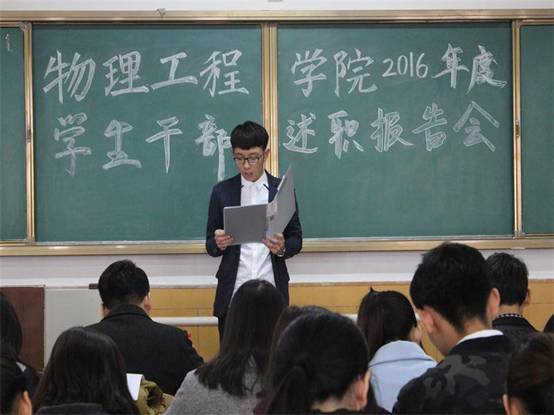 物理工程学院2016年度
学生干部述职报告会